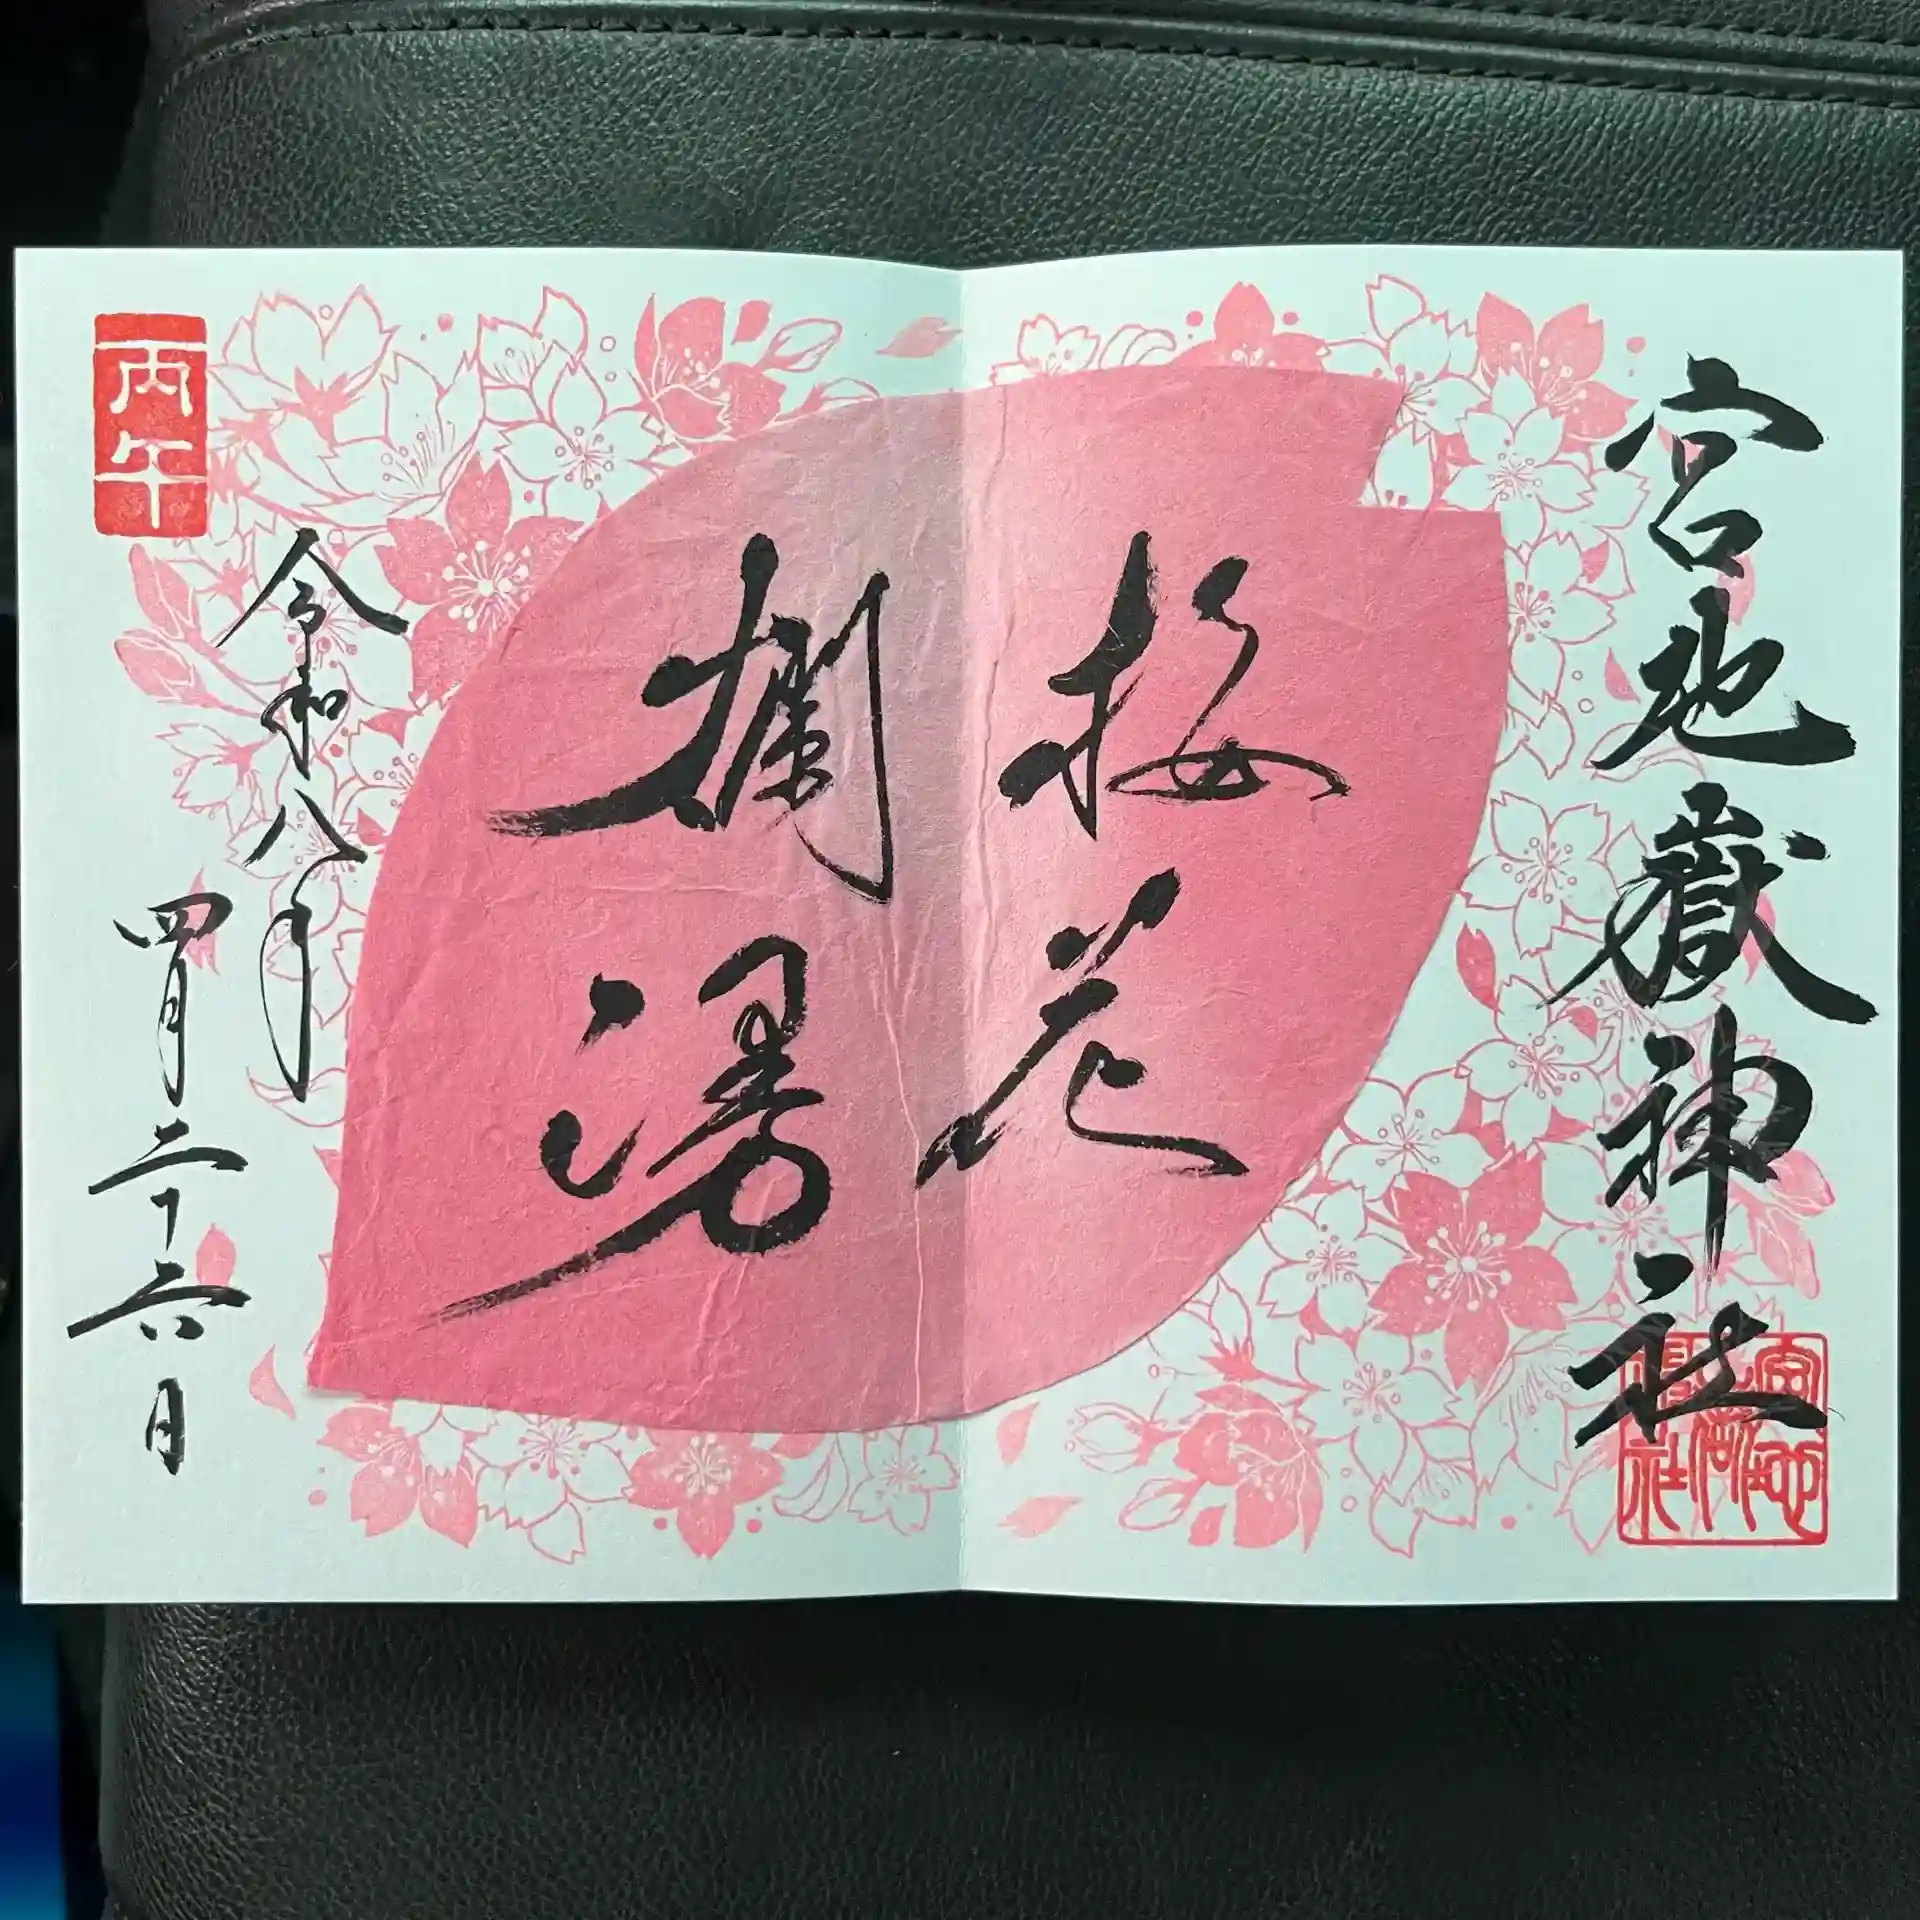 宮地嶽神社
桜花
爛漫
令和八年
四月二十六日
丙午
宮地嶽神社